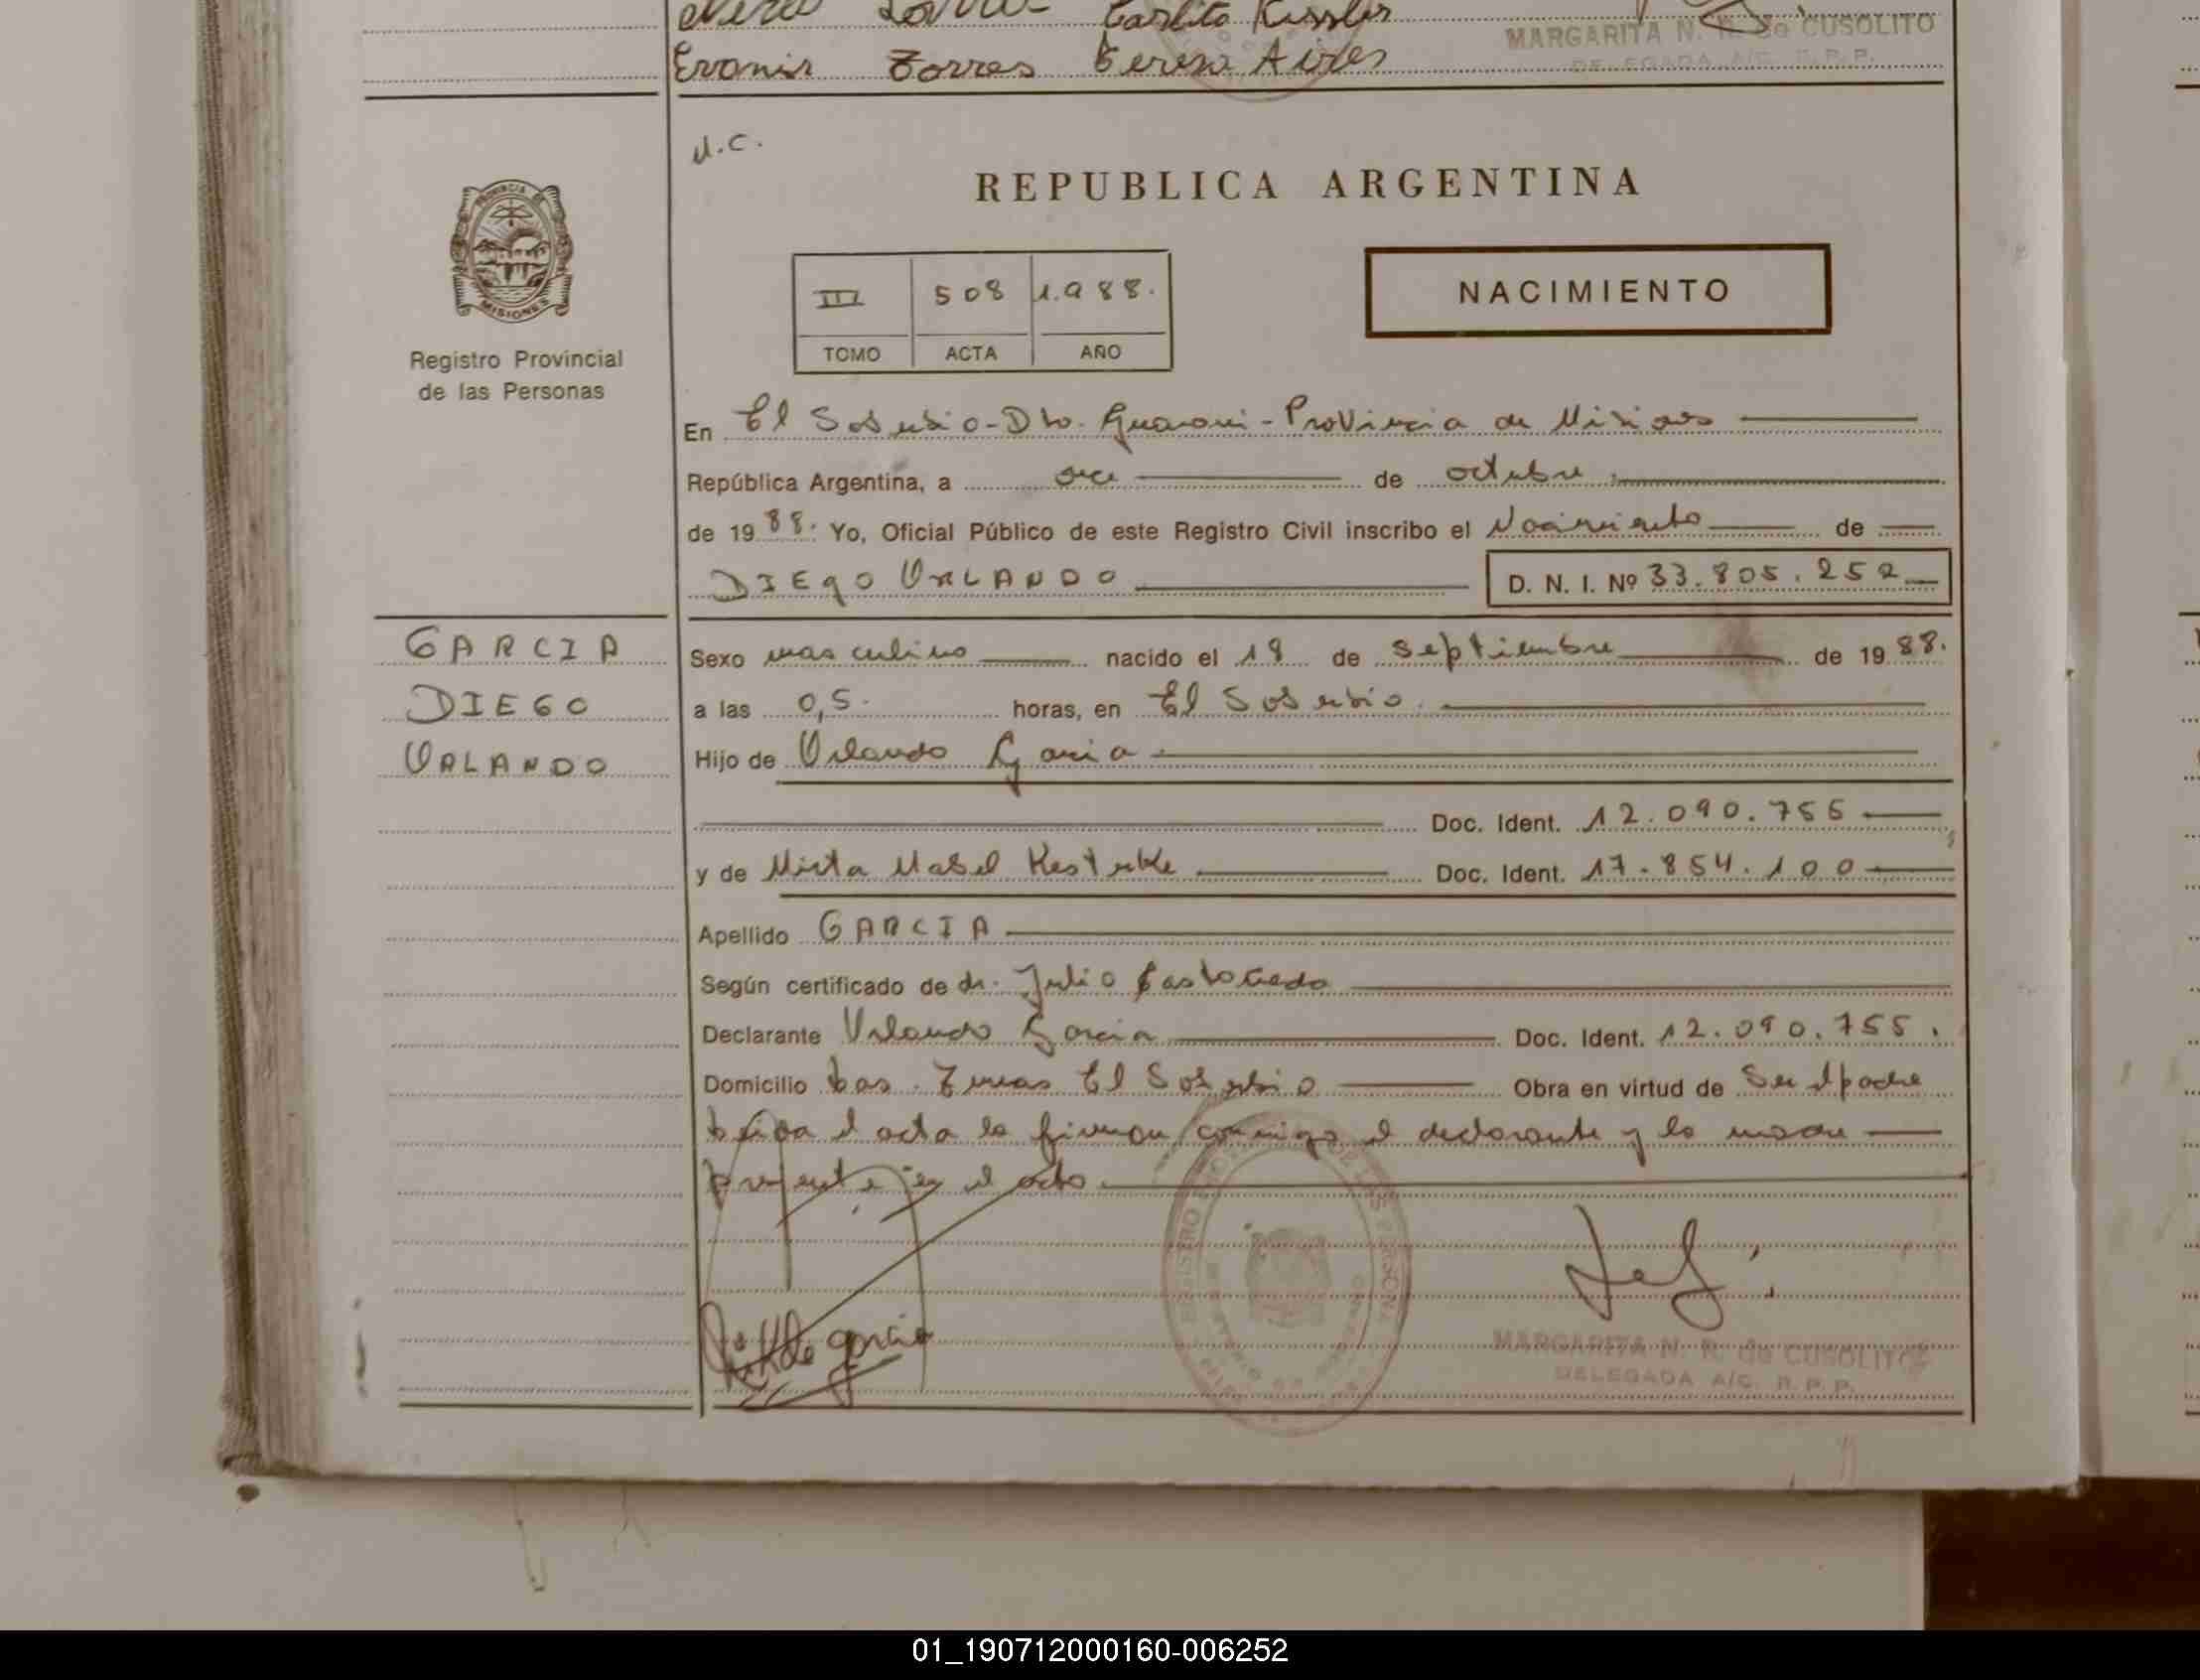 Carlito Kissler
MARGARITA N. R. de CUSOLITO
DELEGADA A/C. R.P.P.
Torres Teresa Aires
N.C.
REPUBLICA ARGENTINA
PROVINCIA DE
MISIONES
Registro Provincial
de las Personas
III 508 1.988.
TOMO ACTA AÑO
NACIMIENTO
En El Soberbio-Dto. Guarani-Provincia de Misiones
República Argentina, a once de octubre
de 1988. Yo, Oficial Público de este Registro Civil inscribo el Nacimiento de
DIEGO ORLANDO D. N. I. Nº 33.805.252
GARCIA
DIEGO
ORLANDO
Sexo masculino nacido el 18 de septiembre de 1988.
a las 0,5. horas, en El Soberbio.
Hijo de Orlando Garcia
Doc. Ident. 12.090.755
y de Mirta Mabel Doc. Ident. 17.854.100
Apellido GARCIA
Según certificado de dr. Julio
Declarante Orlando Garcia Doc. Ident. 12.090.755.
Domicilio El Soberbio Obra en virtud de Ser el padre
Leida el acta la firman conmigo el declarante y la madre
presente en el acto.
garcia
MARGARITA N. R. de CUSOLITO
DELEGADA A/C. R.P.P.
01_190712000160-006252